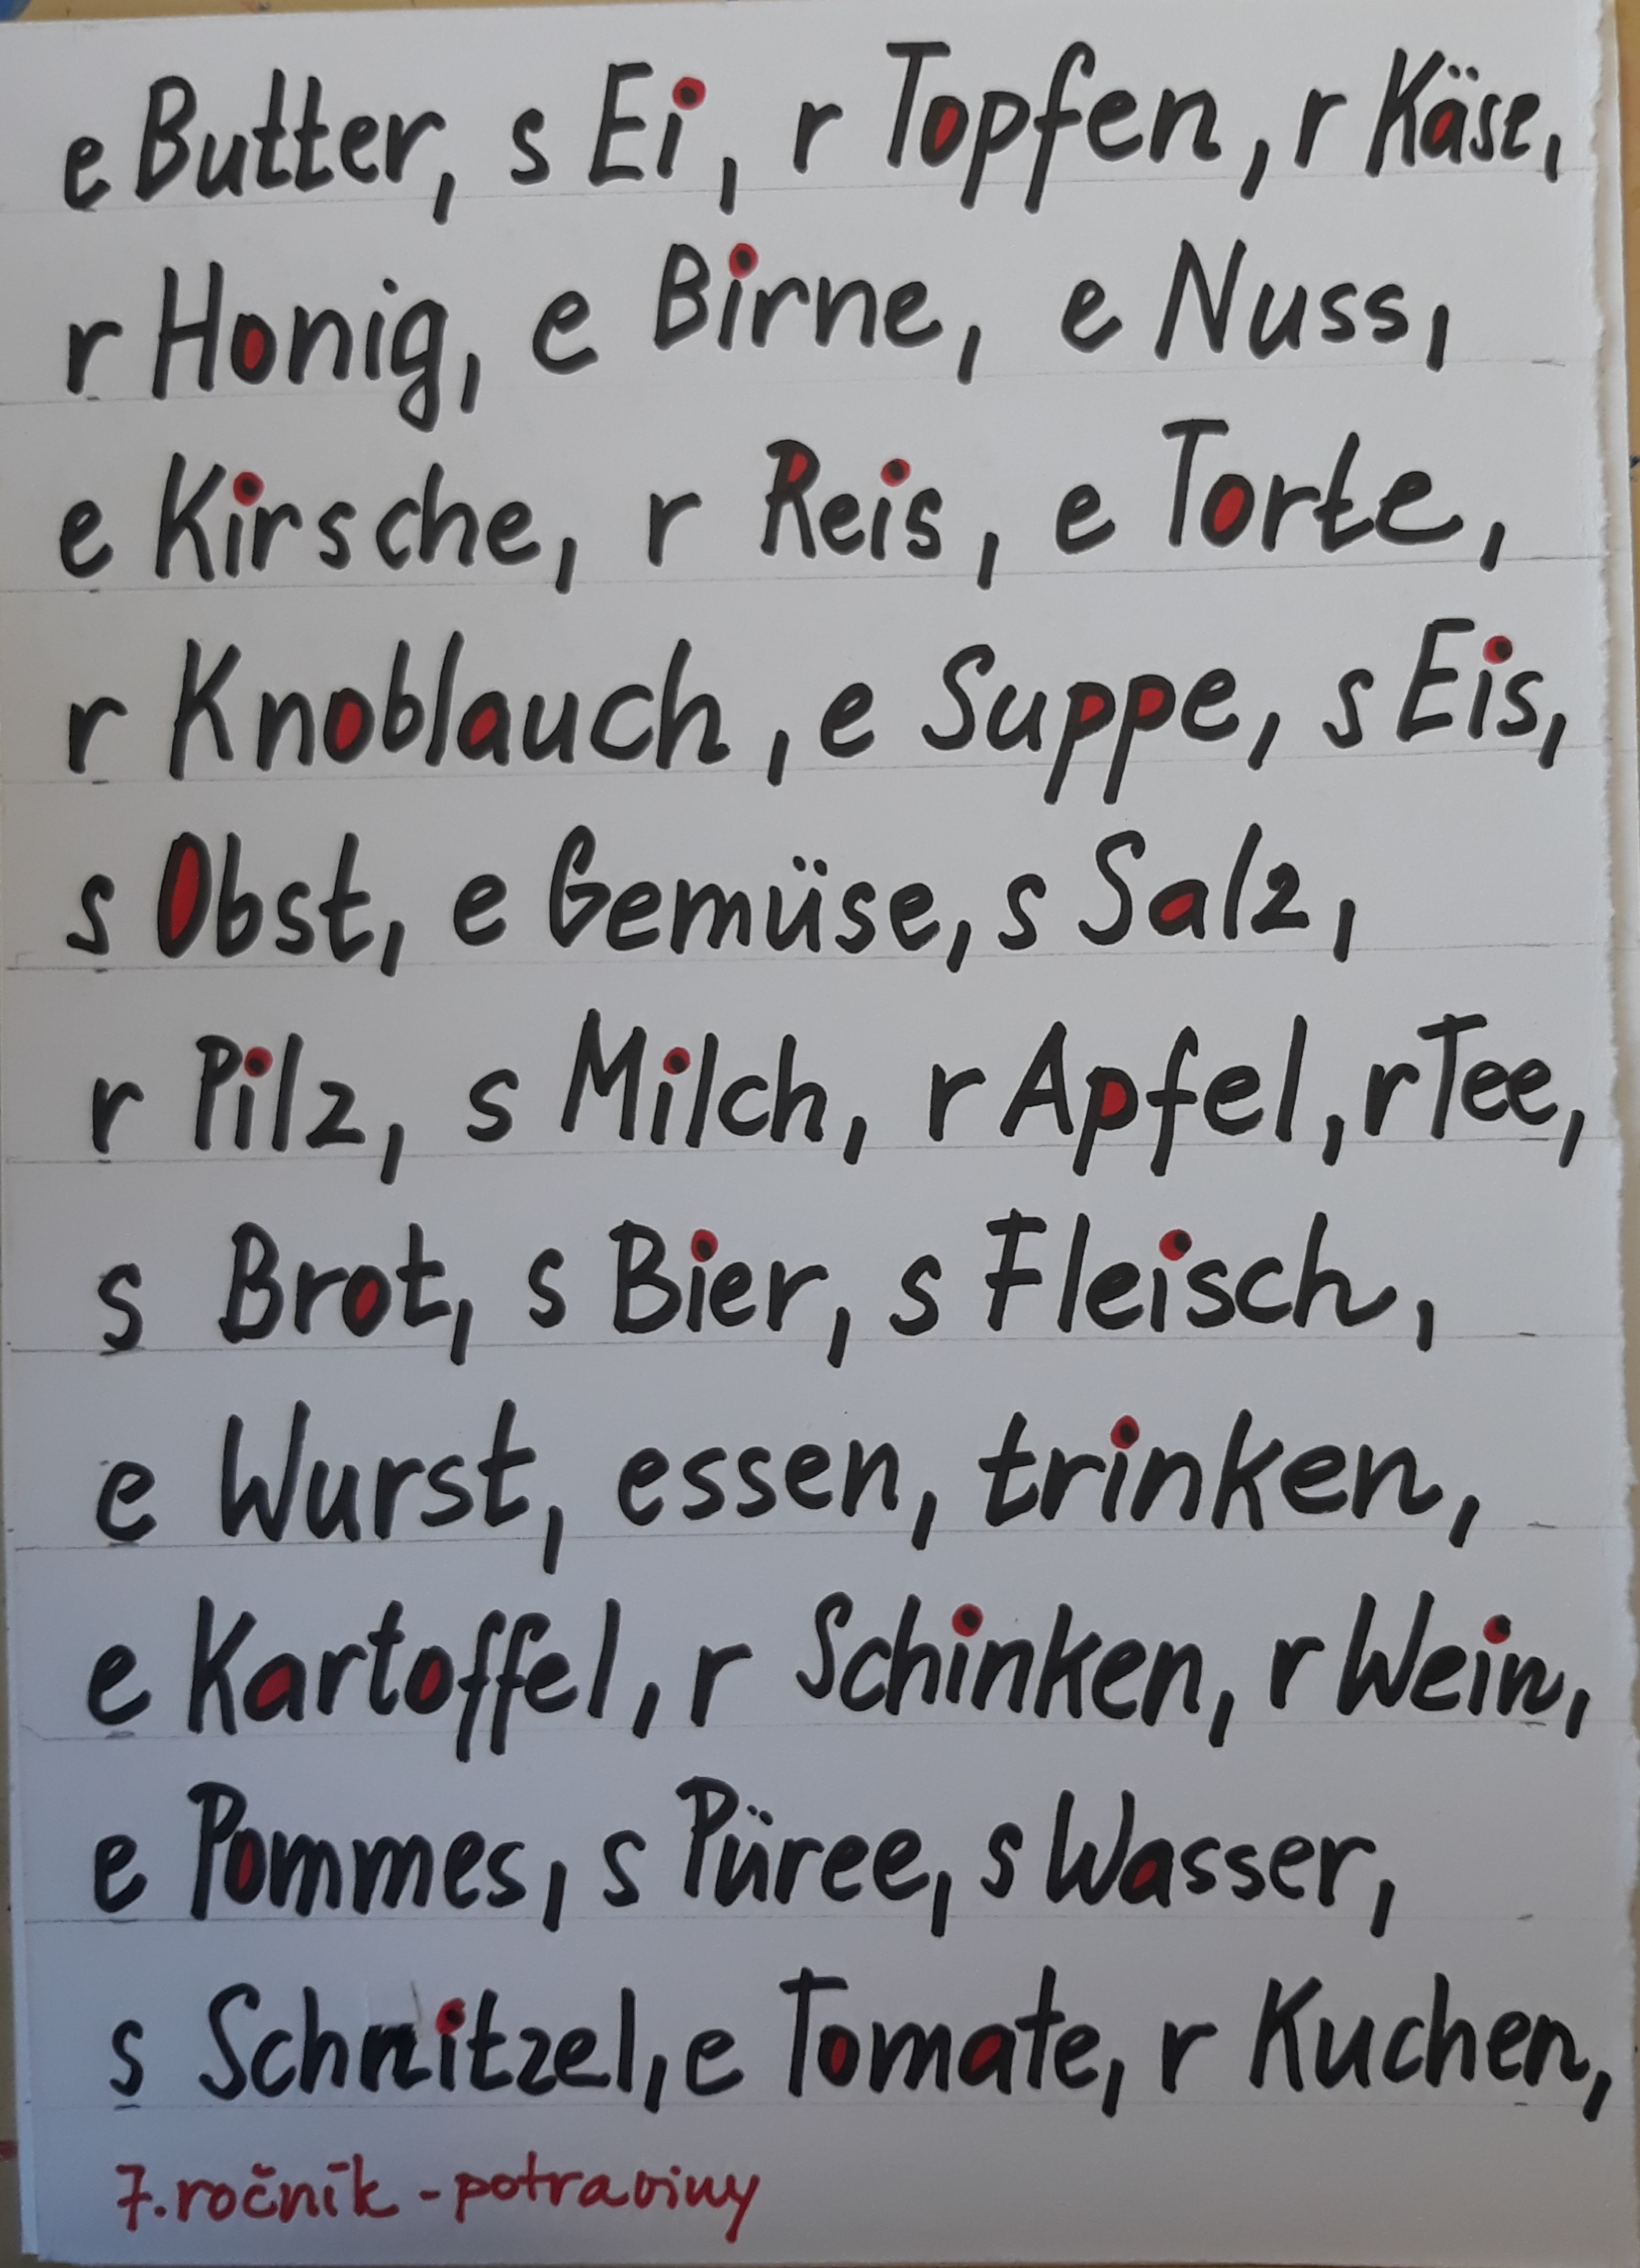 e Butter, s Ei, r Topfen, r Käse,
r Honig, e Birne, e Nuss,
e Kirsche, r Reis, e Torte,
r Knoblauch, e Suppe, s Eis,
s Obst, e Gemüse, s Salz,
r Pilz, s Milch, r Apfel, r Tee,
s Brot, s Bier, s Fleisch,
e Wurst, essen, trinken,
e Kartoffel, r Schinken, r Wein,
e Pommes, s Püree, s Wasser,
s Schnitzel, e Tomate, r Kuchen,
7. ročník - potraviny